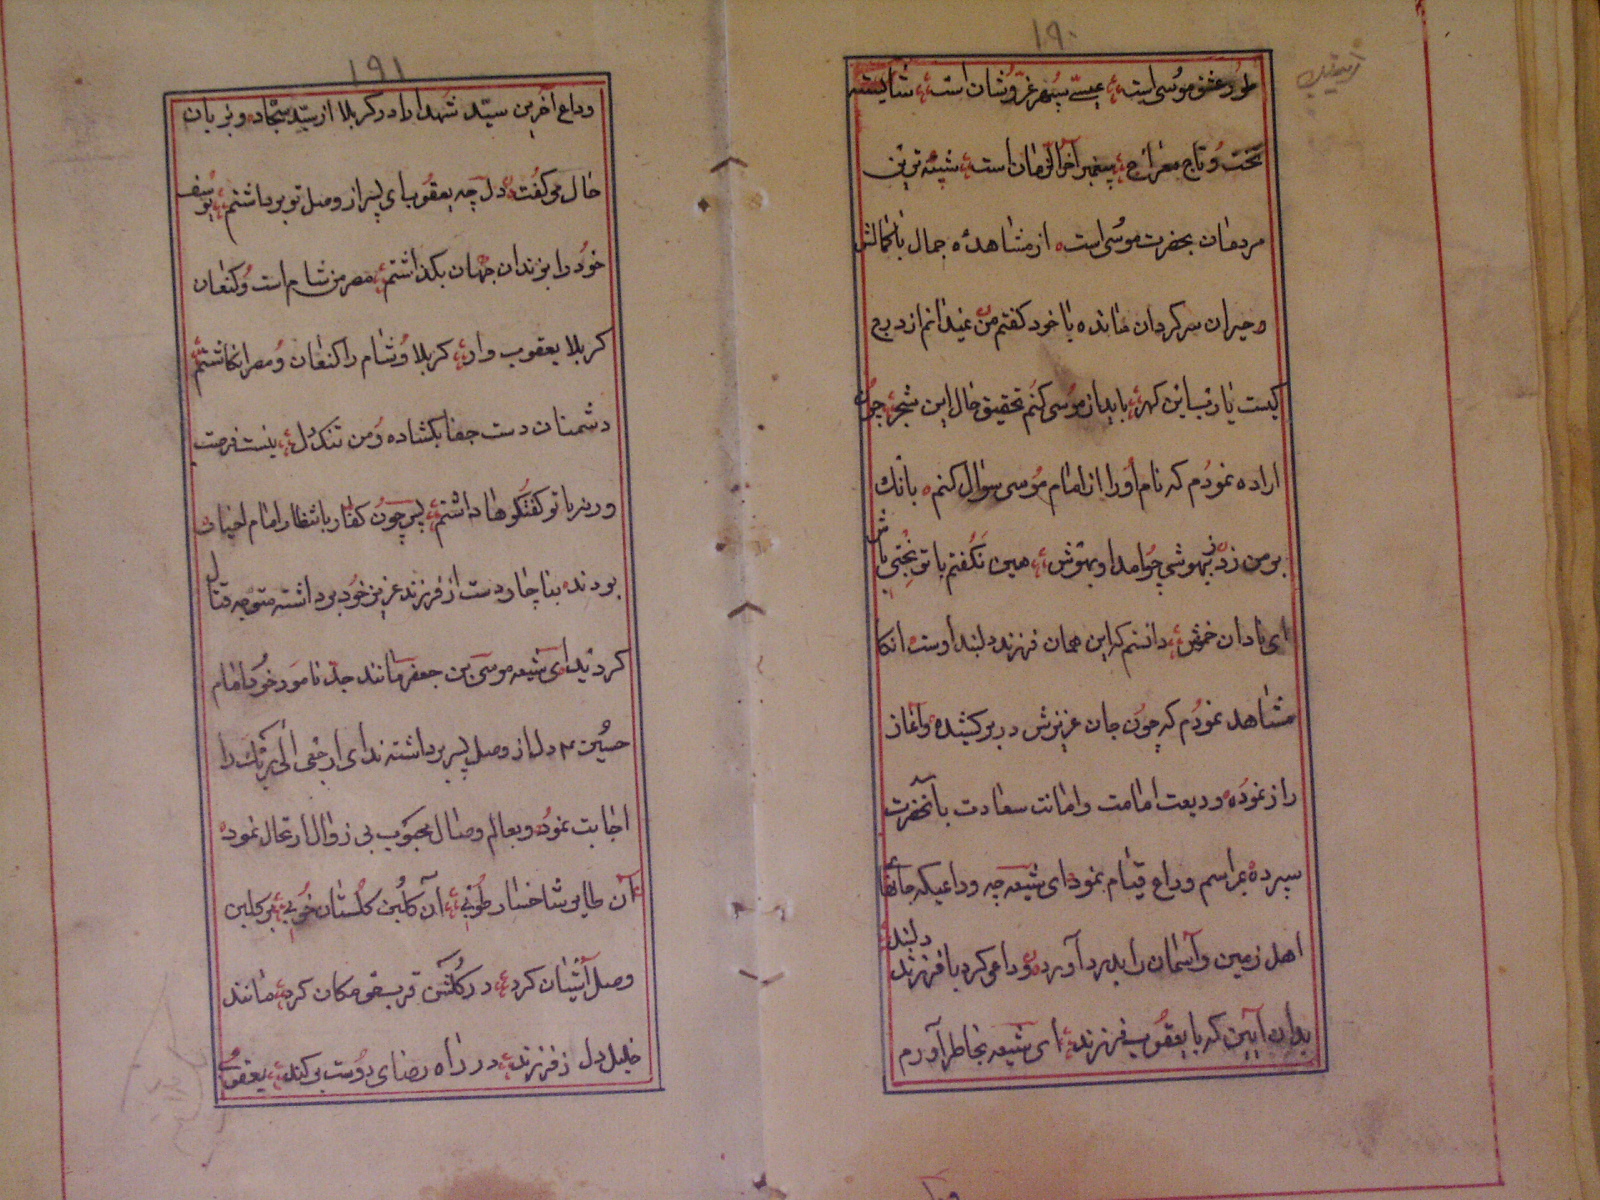 ۱۹۰
طور عشق موسی است عیسی سپهر عز و شان است شایسته
تخت و تاج معراج پیغمبر آخر الزمان است شبیه ترین
مردمان بحضرت موسی است از مشاهده جمال با کمالش
حیران سرکردان مانده با خود کفتم من نمیدانم از درج
کیست یا رب این کهر باید از موسی کنم تحقیق حال این شجر چون
اراده نمودم که نام او را از امام موسی سوال کنم بانک
بر من زد بیهوشی چو امد او بهوش هین نکفتم با تو باش
ای نادان خمش دانستم که این همان فرزند دلبند اوست انکا
مشاهد نمودم که چون جان عزیزش در بر کشیده و آغاز
راز نموده ودیعت امامت و امانت سعادت بآنحضرت
سپرده بمراسم وداع قیام نمود ای شیعه چه وداعیکه جانهای
اهل زمین و آسمان را بدرد آورد وداعی کرد با فرزند دلبند
بدان آیین که با یعقوب فرزند ای شیعه بخاطر آورم
۱۹۱
وداع آخرین سید شهدا را در کربلا از سید سجاد و بزبان
حال می کفت دل چه یعقوب ای پسر از وصل تو برداشتم یوسف
خود را بزندان جهان بکذاشتم مصر من شام است و کنعان
کربلا یعقوب وار کربلا و شام را کنعان و مصر انکاشتم
دشمنان دست جفا بکشاده و من تنک دل نیست فرصت
ورنه با تو کفتکوها داشتم پس چون کفار بانتظار امام اخیار
بودند بناچار دست از فرزند عزیز خود برداشته متوجه قتال
کردید ای شیعه موسی بن جعفر مانند جد نامور خود امام
حسین ۴ دل از وصل پسر برداشته ندای ارجعی الی ربک را
اجابت نمود و بعالم وصال محبوب بی زوال ارتحال نمود
آن طایر شاخسار طوبی آن کلبن کلستان خوبی بر کلبن
وصل آشیان کرد در کلشن قرب حق مکان کرد مانند
خلیل دل ز فرزند در راه رضای دوست بر کند یعقوب